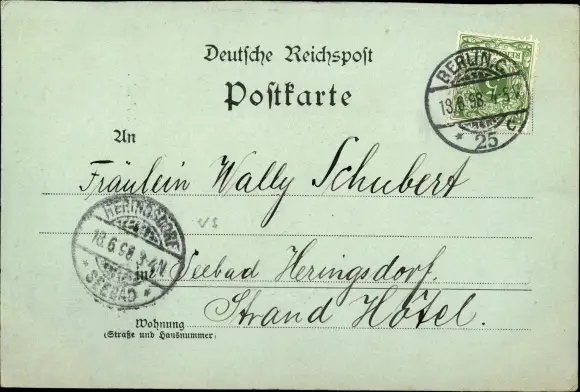 Deutsche Reichspost
Postkarte
BERLIN. C.
18.6.98. 4-5N.
* 25 c
An
Fräulein Wally Schubert
HERINGSDORF
18.6.98. 3-4N.
* SEEBAD *
vs
in Seebad Heringsdorf.
Strand Hôtel.
Wohnung
(Straße und Hausnummer)